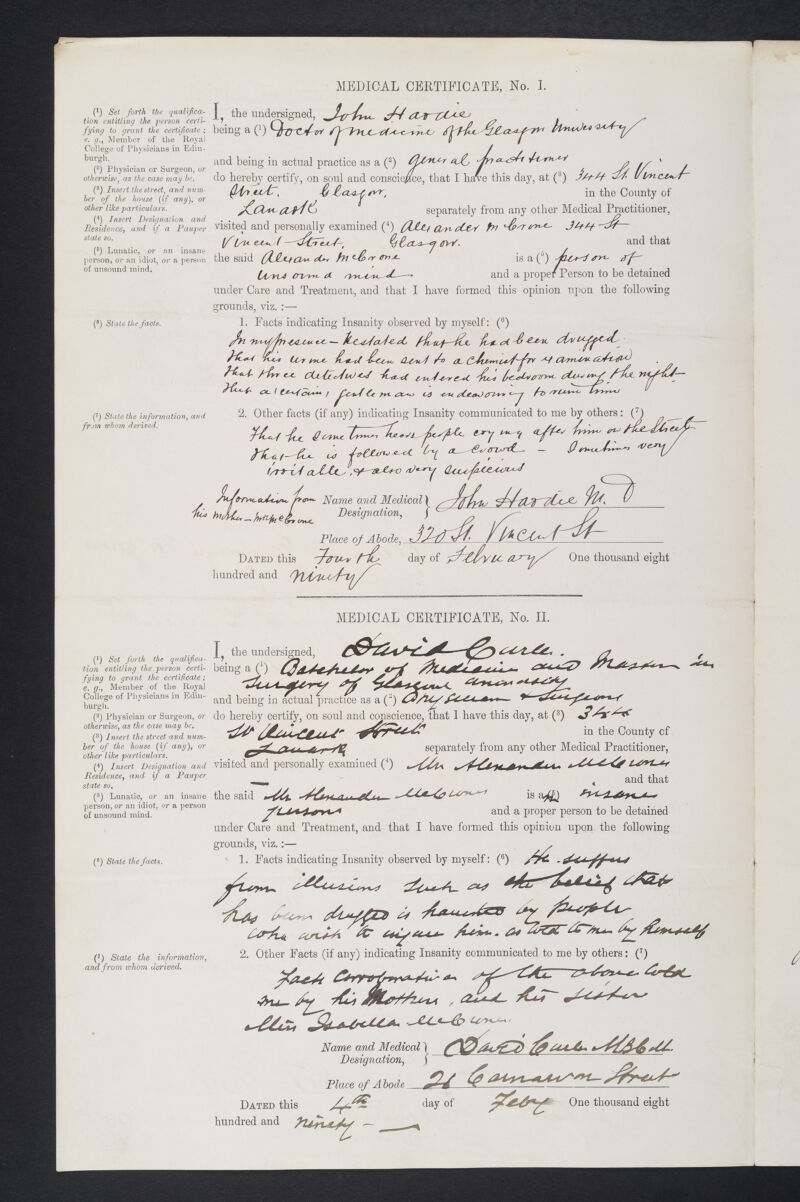 MEDICAL CERTIFICATE, No. I.
(1) Set forth the qualifica-
tion entitling the person certi-
fying to grant the certificate;
e. g., Member of the Royal
College of Physicians in Edin-
burgh.
(2) Physician or Surgeon, or
otherwise, as the case may be.
(3) Insert the street, and num-
ber of the house (if any), or
other like particulars.
(4) Insert Designation and
Residence, and if a Pauper
state so.
(5) Lunatic, or an insane
person, or an idiot, or a person
of unsound mind.
I, the undersigned, John Hardie
being a (1) Doctor of medicine of the Glasgow University
and being in actual practice as a (2) general practitioner
do hereby certify, on soul and conscience, that I have this day, at (3) 344 St. Vincent
Street. Glasgow, in the County of
Lanark separately from any other Medical Practitioner,
visited and personally examined (4) Alexander McCrone 344 St
Vincent Street, Glasgow. and that
the said Alexander McCrone is a (5) person of
unsound mind and a proper Person to be detained
under Care and Treatment, and that I have formed this opinion upon the following
grounds, viz. :—
(6) State the facts.
1. Facts indicating Insanity observed by myself: (6)
In my presence – he stated that he had been drugged.
That his urine had been sent to a chemist for examination
That three detectives had entered his bedroom during the night
That a certain gentleman is endeavouring to ruin him
(7) State the information, and
from whom derived.
2. Other facts (if any) indicating Insanity communicated to me by others: (7)
That he sometimes hears people crying after him on the Street
That he is followed by a crowd – Sometimes very
irritable, & also very suspicious
Information from
his mother – Mrs McCrone
Name and Medical Designation, John Hardie M. D
Place of Abode, 320 St. Vincent St
DATED this Fourth day of February One thousand eight
hundred and ninety
MEDICAL CERTIFICATE, No. II.
(1) Set forth the qualifica-
tion entitling the person certi-
fying to grant the certificate;
e. g., Member of the Royal
College of Physicians in Edin-
burgh.
(2) Physician or Surgeon, or
otherwise, as the case may be.
(3) Insert the street and num-
ber of the house (if any), or
other like particulars.
(4) Insert Designation and
Residence, and if a Pauper
state so.
(5) Lunatic, or an insane
person, or an idiot, or a person
of unsound mind.
I, the undersigned, David
being a (1) Batchelor of Medicine and Master in
Surgery of Glasgow University
and being in actual practice as a (2) Physician & Surgeon
do hereby certify, on soul and conscience, that I have this day, at (3) 344
St Vincent Street in the County of
Lanark separately from any other Medical Practitioner,
visited and personally examined (4) Mr Alexander McCrone
— and that
the said Mr Alexander McCrone is a (5) insane
person and a proper person to be detained
under Care and Treatment, and that I have formed this opinion upon the following
grounds, viz. :—
(6) State the facts.
1. Facts indicating Insanity observed by myself: (6) He suffers
from illusions such as the belief that
has been drugged is haunted by people
who wish to injure him. as told to me by himself
(7) State the information,
and from whom derived.
2. Other Facts (if any) indicating Insanity communicated to me by others: (7)
of the above told
me by his Mother, and his sister
Miss Isabella McCrone.
Name and Medical Designation, David
Place of Abode 26 Carnarvon Street
DATED this 4th day of Feby One thousand eight
hundred and ninety –